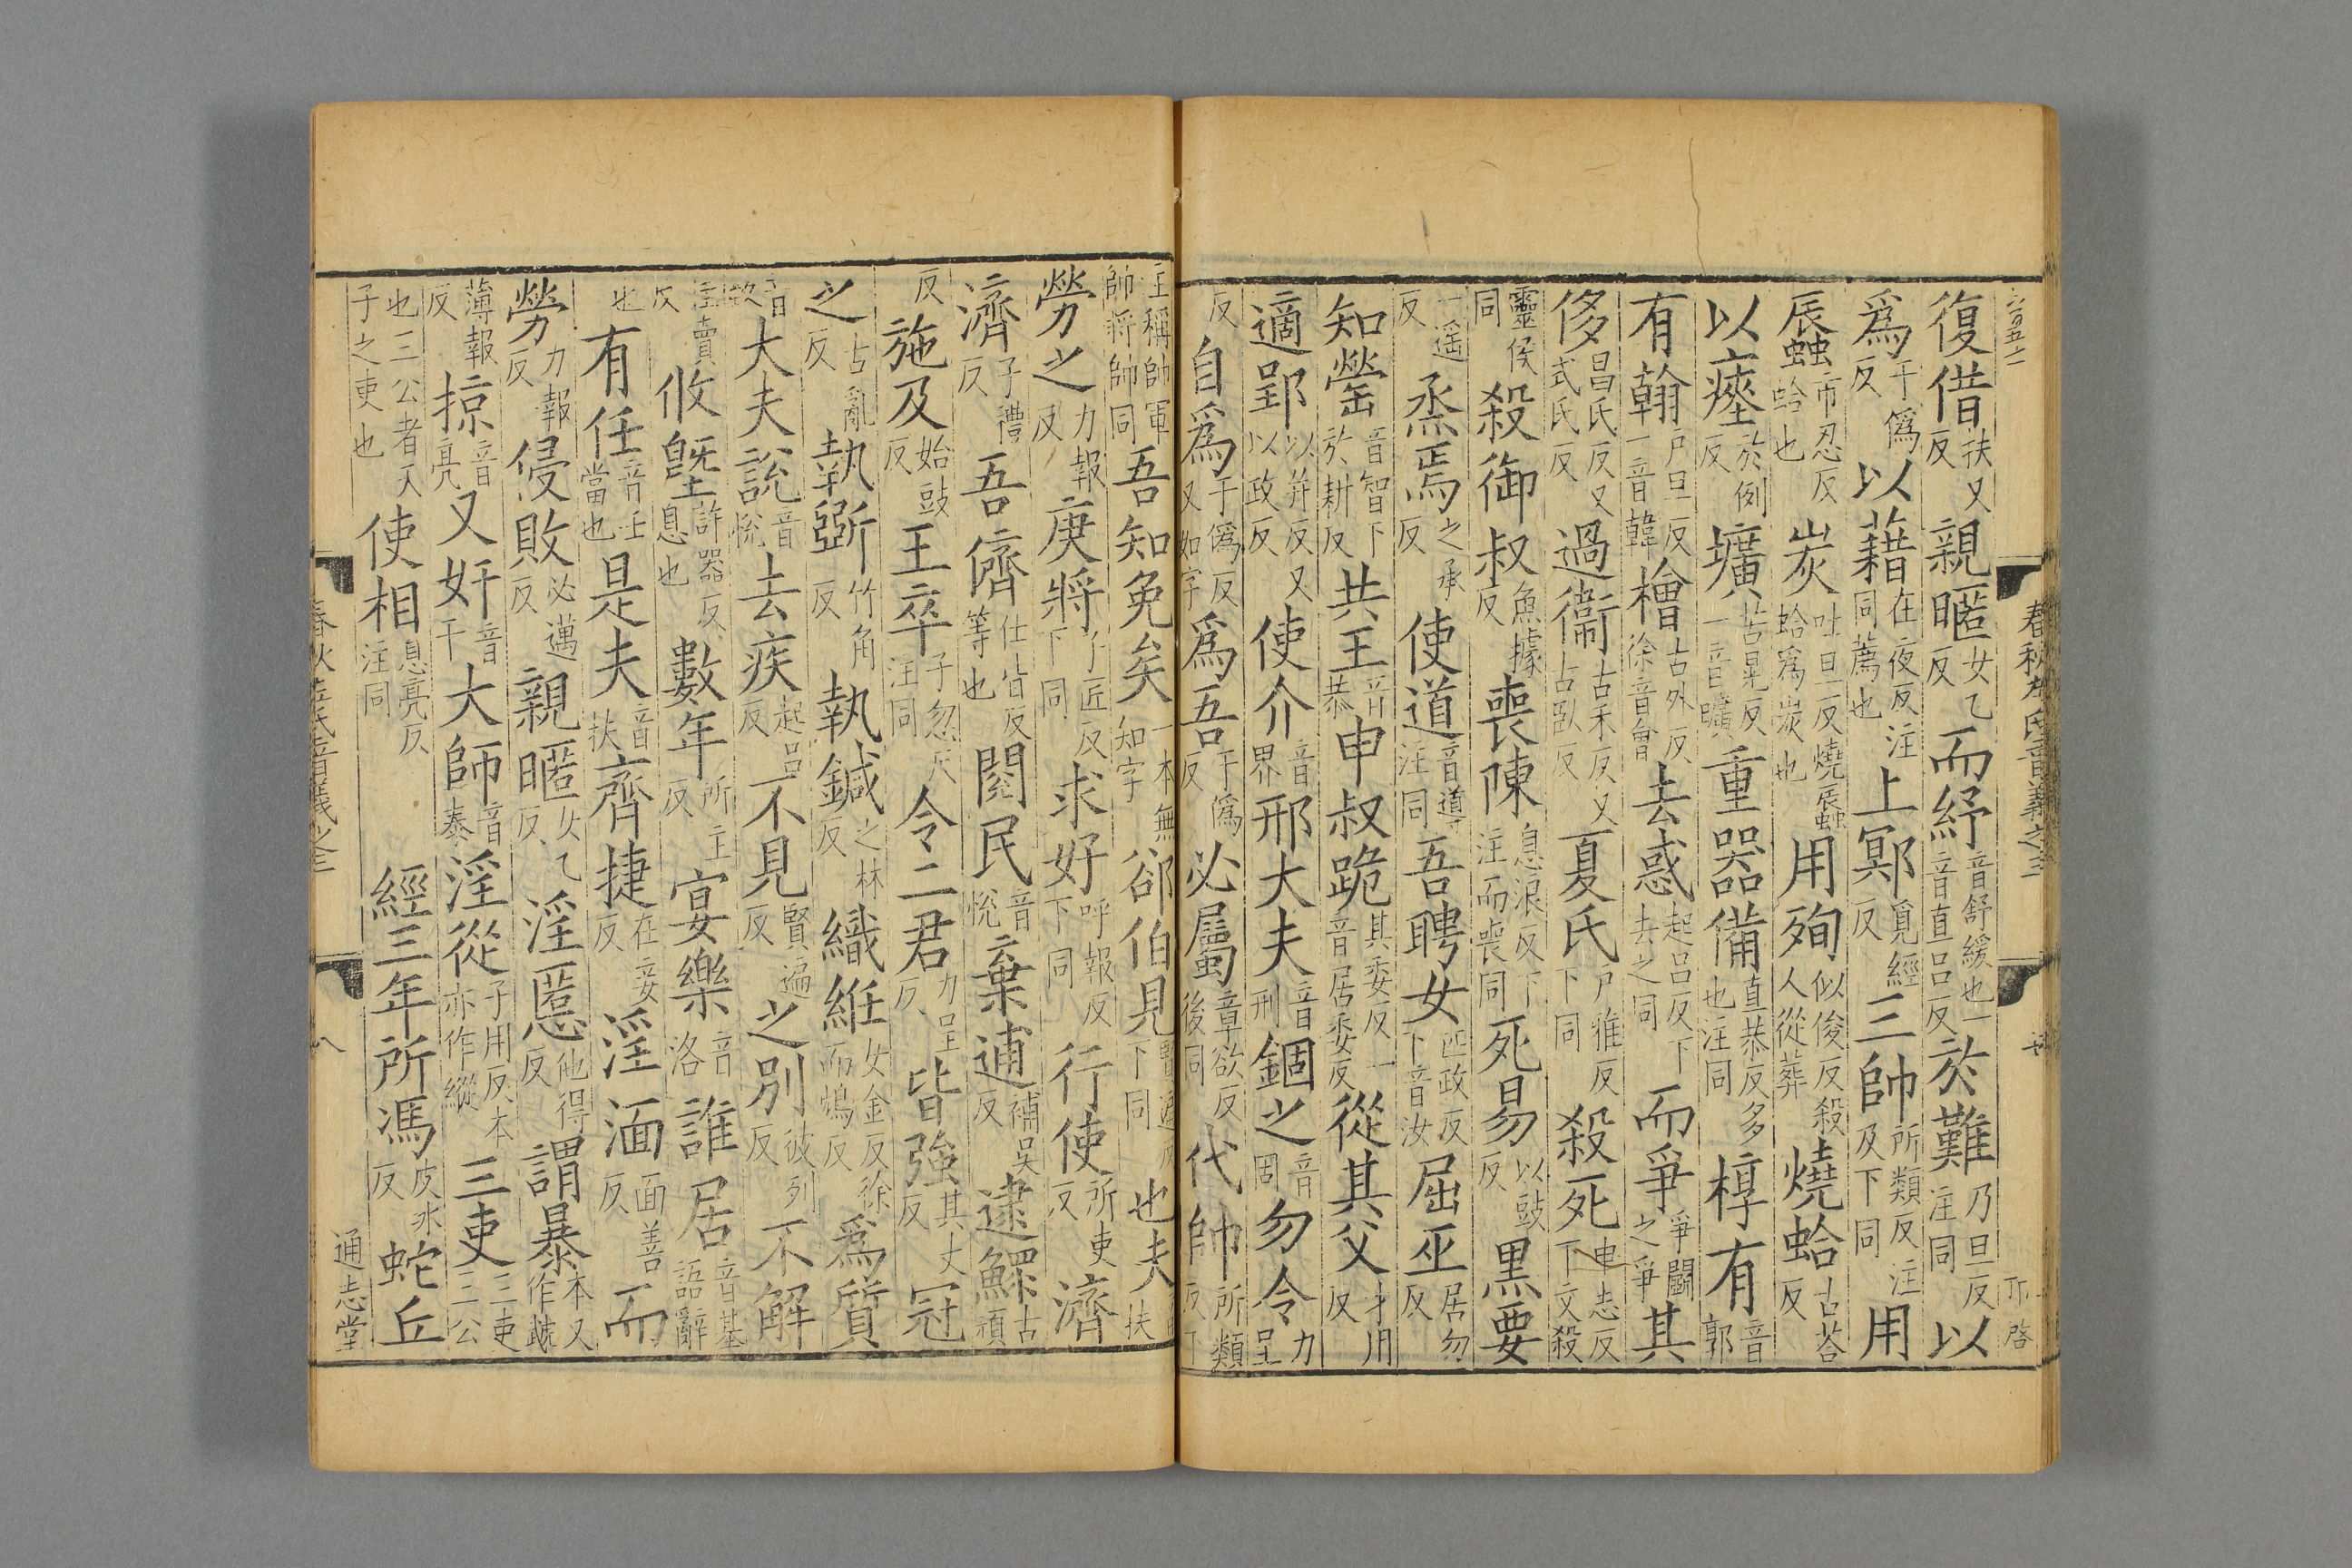 春秋左氏音義之三
復借扶又反親暱女乙反而紓音舒緩也一音直呂反於難乃旦反注同以
爲于僞反以藉在夜反注同薦也上鄍覓經反三帥所類反注及下同用
蜃市忍反蛤也炭吐旦反燒蜃蛤爲炭也用殉似俊反殺人從葬燒蛤古荅反
以瘞於例反壙苦晃反一音曠重器備直恭反多也注同椁有音郭
有翰戶旦反一音韓檜古外反徐音會去惑起呂反下去之同而爭爭鬭之爭其
侈昌氏反又式氏反過衞古禾反又古臥反夏氏戶雅反下同殺死申志反下文殺
靈侯同殺御叔魚據反喪陳息浪反下注而喪同死易以豉反黑要
一遥反烝焉之承反使道音導注同吾聘女匹政反下音汝屈巫居勿反
知罃音智下於耕反共王音恭申叔跪其委反一音居委反從其父才用反
適郢以井反又以政反使介音界邢大夫音刑錮之音固勿令力呈
反自爲于僞反又如字爲吾于僞反必屬章欲反後同代帥所類反下
注稱帥軍帥將帥同吾知免矣一本無知字郤伯見賢遍反下同也夫音扶
勞之力報反庚將子匠反下同求好呼報反下同行使所吏反濟
濟子禮反吾儕仕皆反等也閱民音悅棄逋補吳反逮鰥古頑
反施及始豉反王卒子忽反注同令二君力呈反皆強其丈反冠
之古亂反執斲竹角反執鍼之林反織紝女金反徐而鴆反爲質
音致大夫說音悅去疾起呂反不見賢遍反之別彼列反不解
佳賣反攸塈許器反息也數年所主反宴樂音洛誰居音基語辭
也有任音壬當也是夫音扶齊捷在妾反淫湎面善反而
勞力報反侵敗必邁反親暱女乙反淫慝他得反謂暴本又作虣
薄報反掠音亮又奸音干大師音泰淫從子用反本亦作縱三吏三吏三公
也三公者天子之吏也使相息亮反注同經三年所馮皮氷反蛇丘
春秋左氏音義之三
八
通志堂